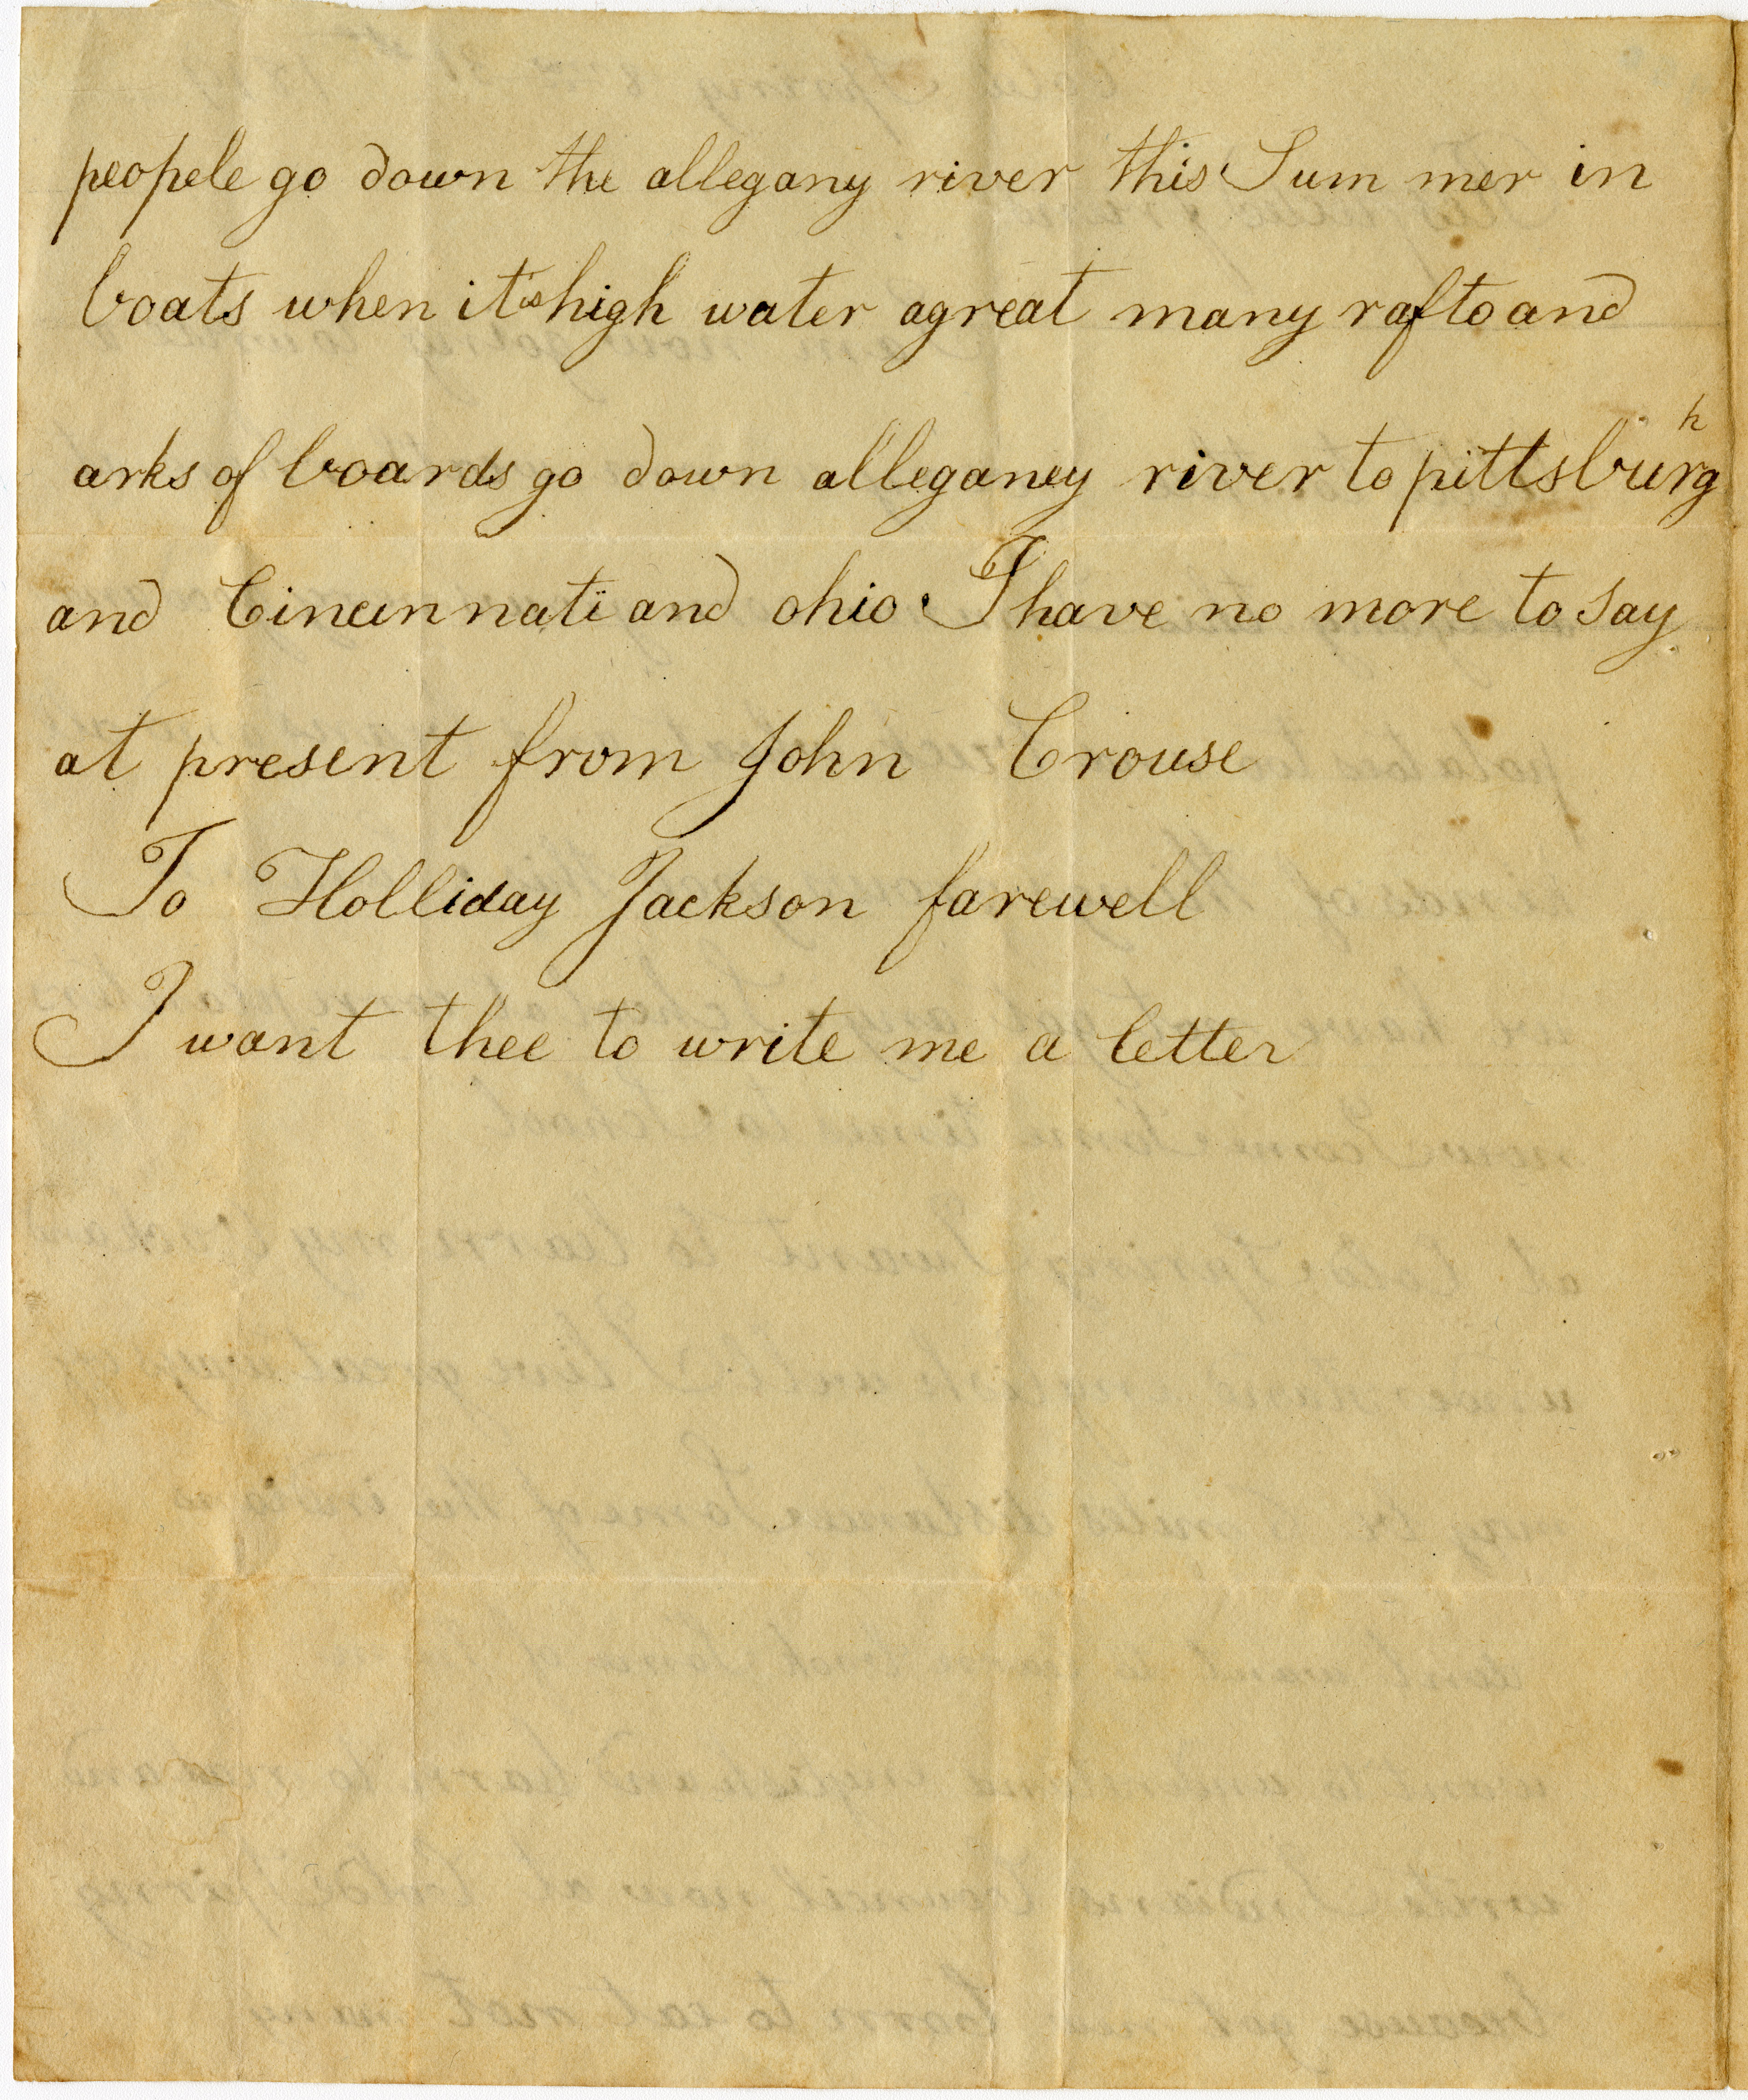 peopele go down the allegany river this Sum mer in
boats when it is high water agreat many rafts and
arks of boards go down alleganey river to pittsburgh
and Cincinnati and ohio I have no more to say
at present from John Crouse
To Holliday Jackson farewell
I want thee to write me a letter